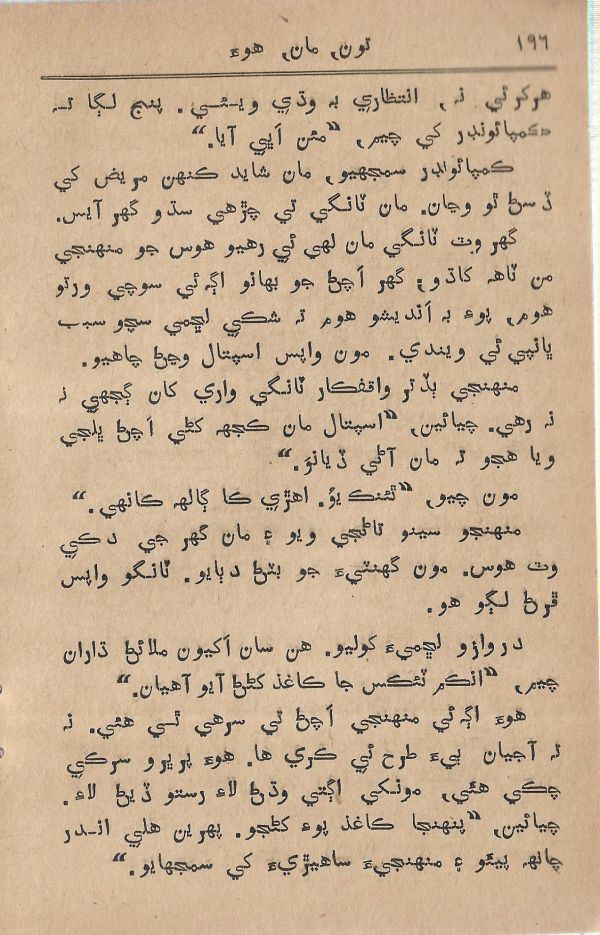 ١٩٦
تون, مان, هوءَ
هرکر ئي نہ, انتظاري بہ وڌي ويـئـي. پنج لڳا تـہ
ڪمپائونڊر کي چيم, “مئن اَپي آيا.”
ڪمپائونڊر سمجهيو, مان شايد ڪنهن مريض کي
ڏسڻ ٿو وڃان. مان ٽانگي تي چڙهي سڌو گهر آيس.
گهر وٽ ٽانگي مان لهي ئي رهيو هوس جو منهنجي
من ٺاهہ ڪاڌو; گهر اَچڻ جو بهانو اڳہ ئي سوچي ورتو
هوم, پوءِ بہ اَنديشو هوم تہ شڪي لڇمي سچو سبب
ڀانپي ئي ويندي. مون واپس اسپتال وڃڻ چاهيو.
منهنجي ٻڏتر واقفڪار ٽانگي واري کان ڳجهي نہ
نہ رهي. چيائين, “اسپتال مان ڪجهہ کڻي اَچڻ ڀلجي
ويا هجو تہ مان آڻي ڏيانوَ.”
مون چيو, “ٿئنڪ يوُ. اهڙي ڪا ڳالهہ ڪانهي.”
منهنجو سينو تاڻجي ويو ۽ مان گهر جي دڪي
وٽ هوس. مون گهنٽيءَ جو بٽڻ دٻايو. ٽانگو واپس
ڦرڻ لڳو هو.
دروازو لڇميءَ کوليو. هن سان اَکيون ملائڻ ڌاران
چيم, “انڪم ٽئڪس جا ڪاغذ کڻڻ آيو آهيان.”
هوءَ اڳہ ئي منهنجي اَچڻ تي سرهي ٿـي هئي. نہ
تہ آجيان ٻيءَ طرح ئي ڪري ها. هوءَ پرڀرو سرڪي
چڪي هئي, مونکي اڳتي وڌڻ لاءِ رستو ڏيڻ لاءِ.
چيائين, “پنهنجا ڪاغذ پوءِ کڻجو. پهرين هلي انـدر
چانهہ پيئو ۽ منهنجيءَ ساهيڙيءَ کي سمجهايو.”